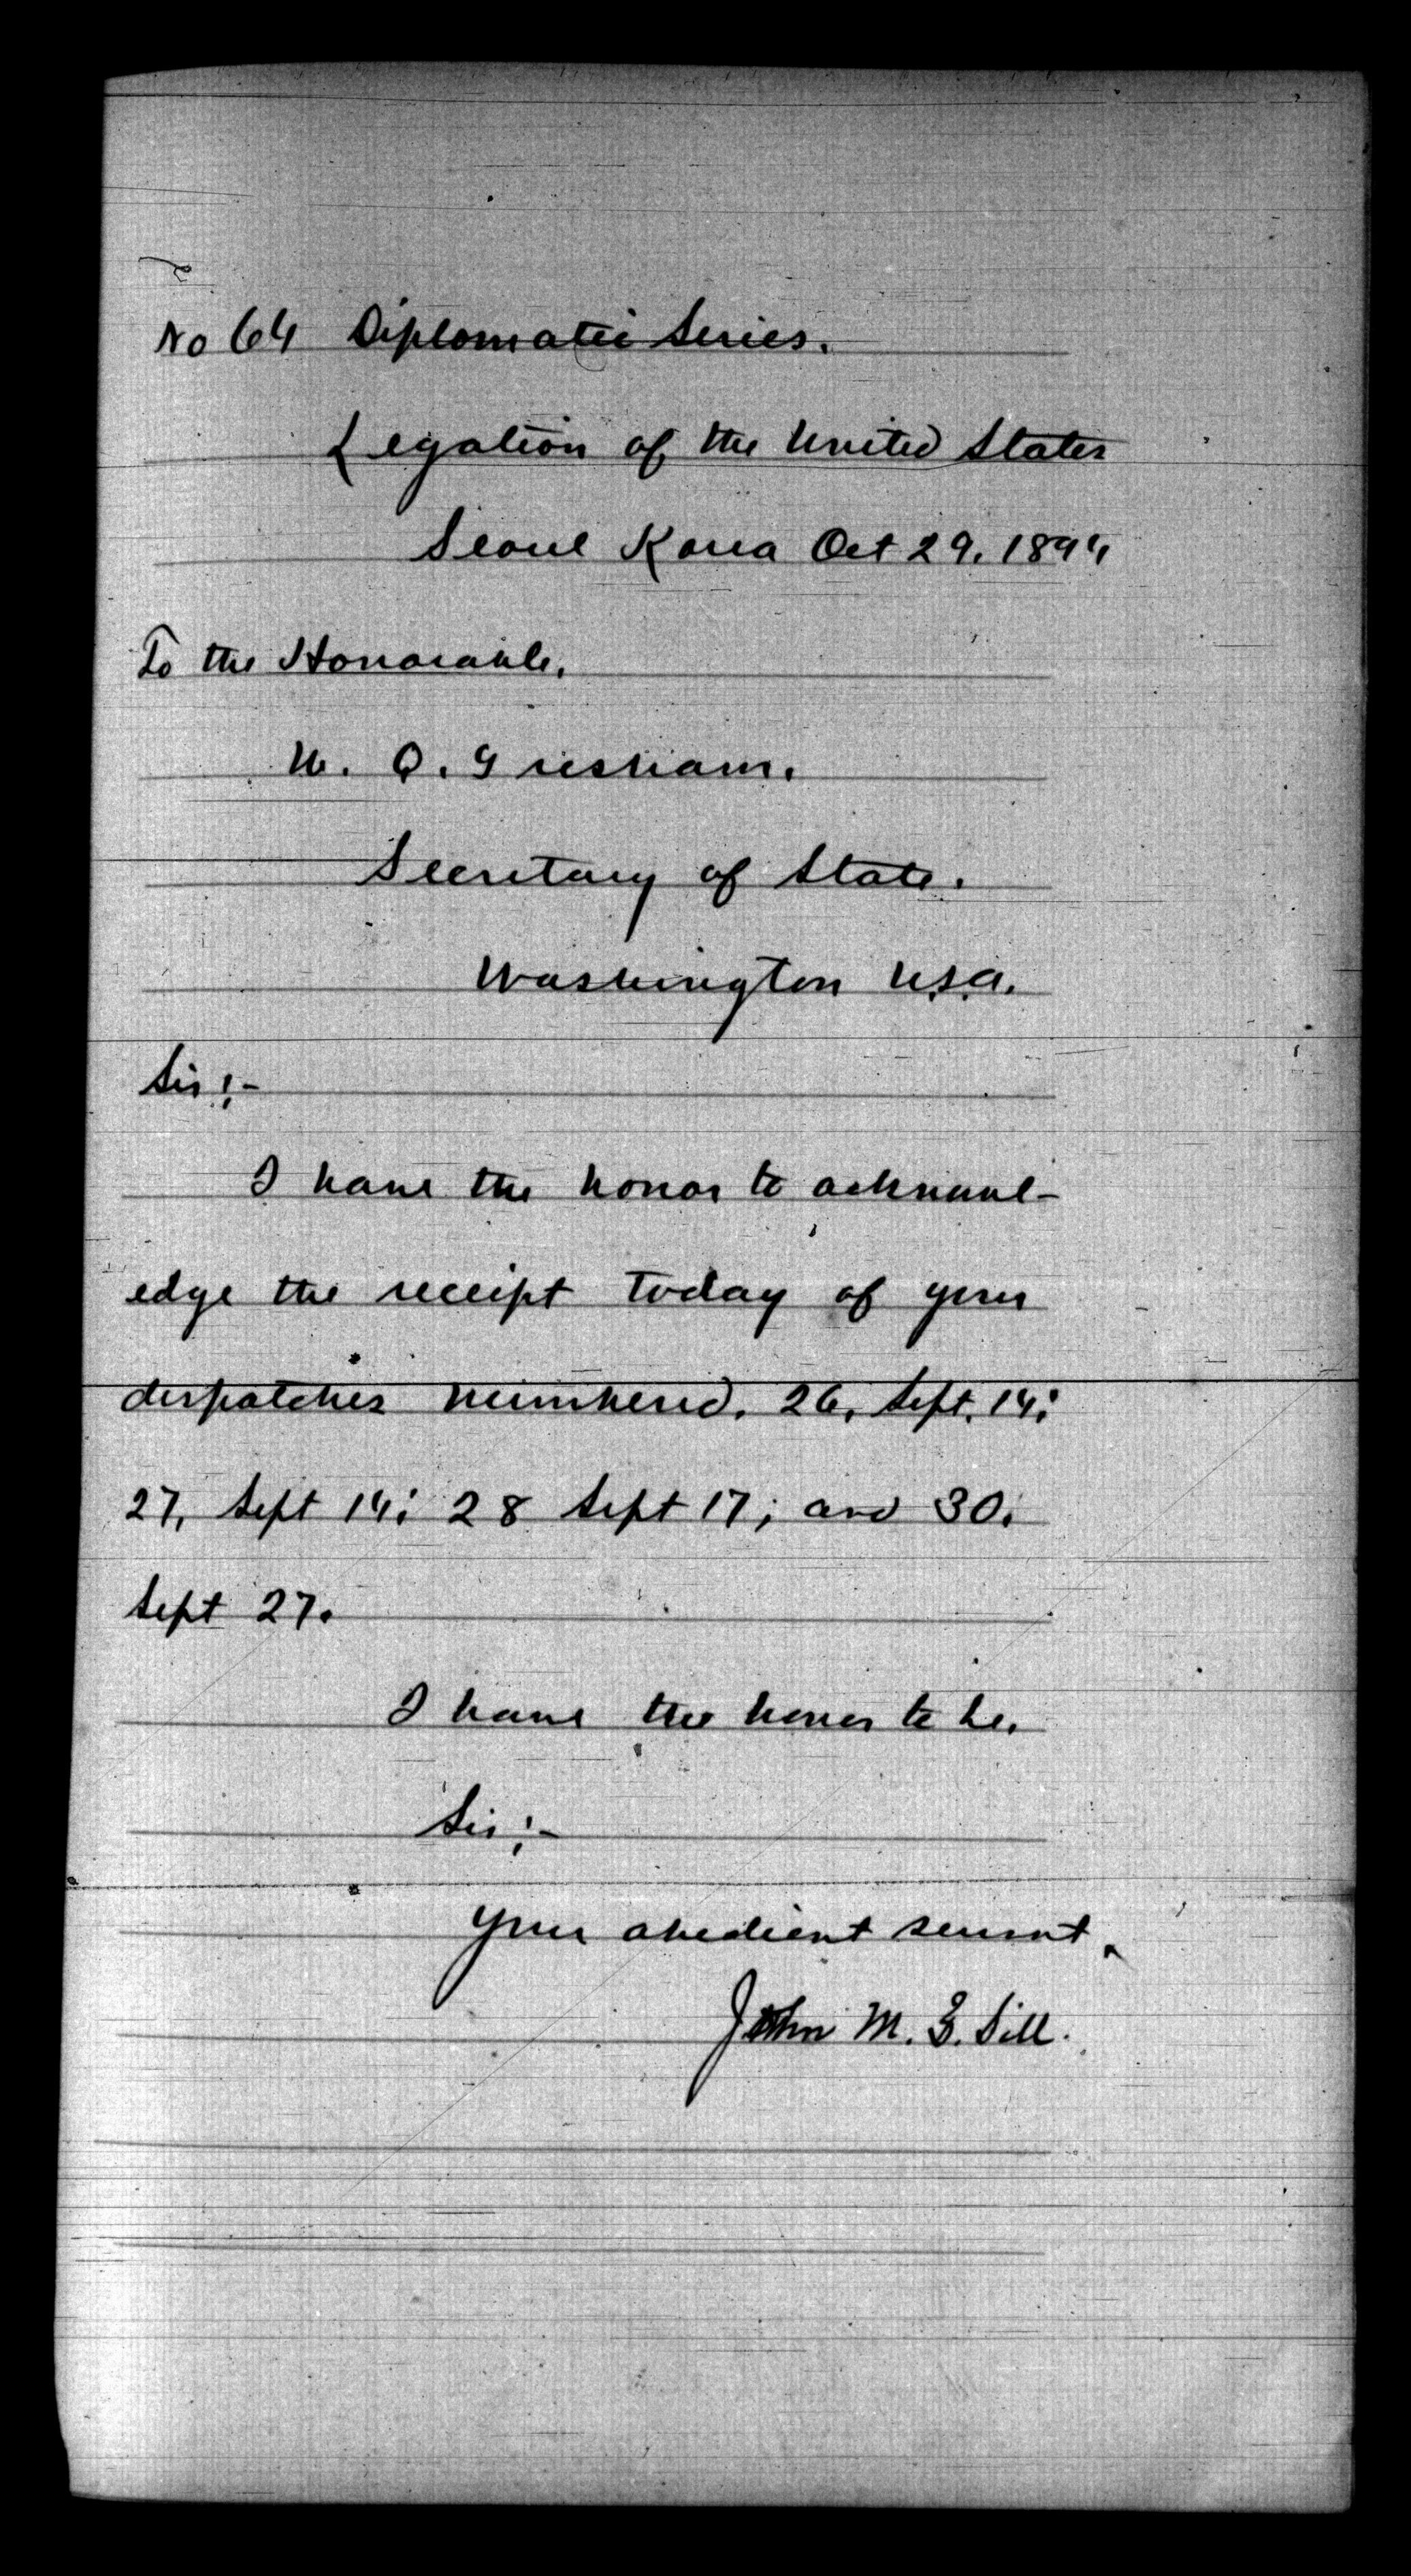 No 64 Diplomatic Series.
Legation of the United States
Seoul Korea Oct 29. 1894
To the Honorable,
W. Q. Gresham.
Secretary of State.
Washington U.S.A.
Sir;-
I have the honor to acknowl-
edge the receipt today of your
despatches numbered. 26, Sept. 14;
27, Sept 14; 28 Sept 17; and 30;
Sept 27.
I have the honor to be.
Sir;-
Your obedient servant,
John M. B. Sill.